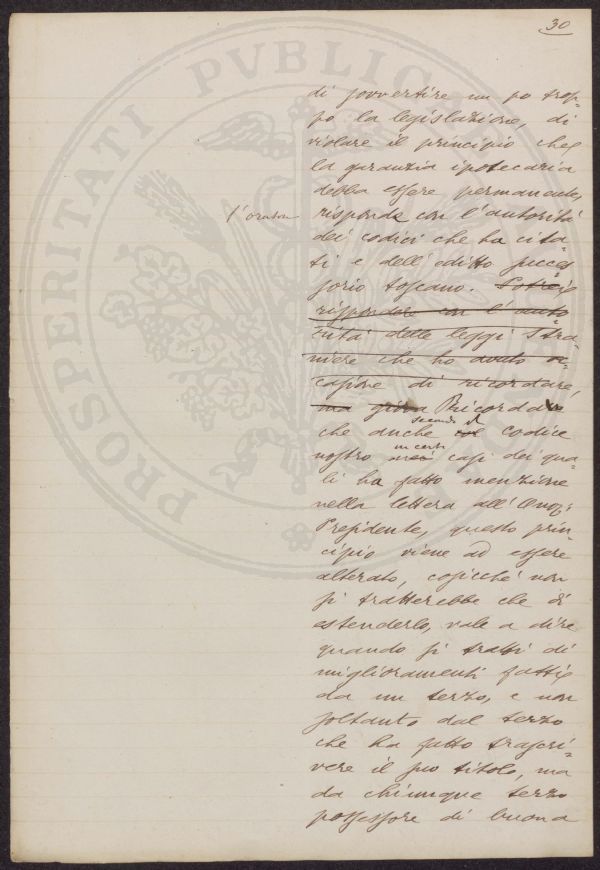 30
di sovvertire un po trop=
po la legislazione, di
violare il principio che
la garanzia ipotecaria
debba essere permanente,
l'oratore
risponde con l'autorità
dei codici che ha cita=
ti e dell'editto succes
sorio toscano.
rispondere con l'auto=
rità delle leggi stra=
niere che ho avuto oc=
casione di ricordare,
ma Ricorda
che anche secondo il codice
nostro in certi casi dei qua=
li ha fatto menzione
nella lettera all'Onor:
Presidente, questo prin=
cipio viene ad essere
alterato, cosicché non
si tratterebbe che di
estenderlo, vale a dire
quando si tratti di
miglioramenti fatti
da un terzo, e non
soltanto dal terzo
che ha fatto trascri=
vere il suo titolo, ma
da chiunque terzo
possessore di buona
PROSPERITATI PVBLICAE